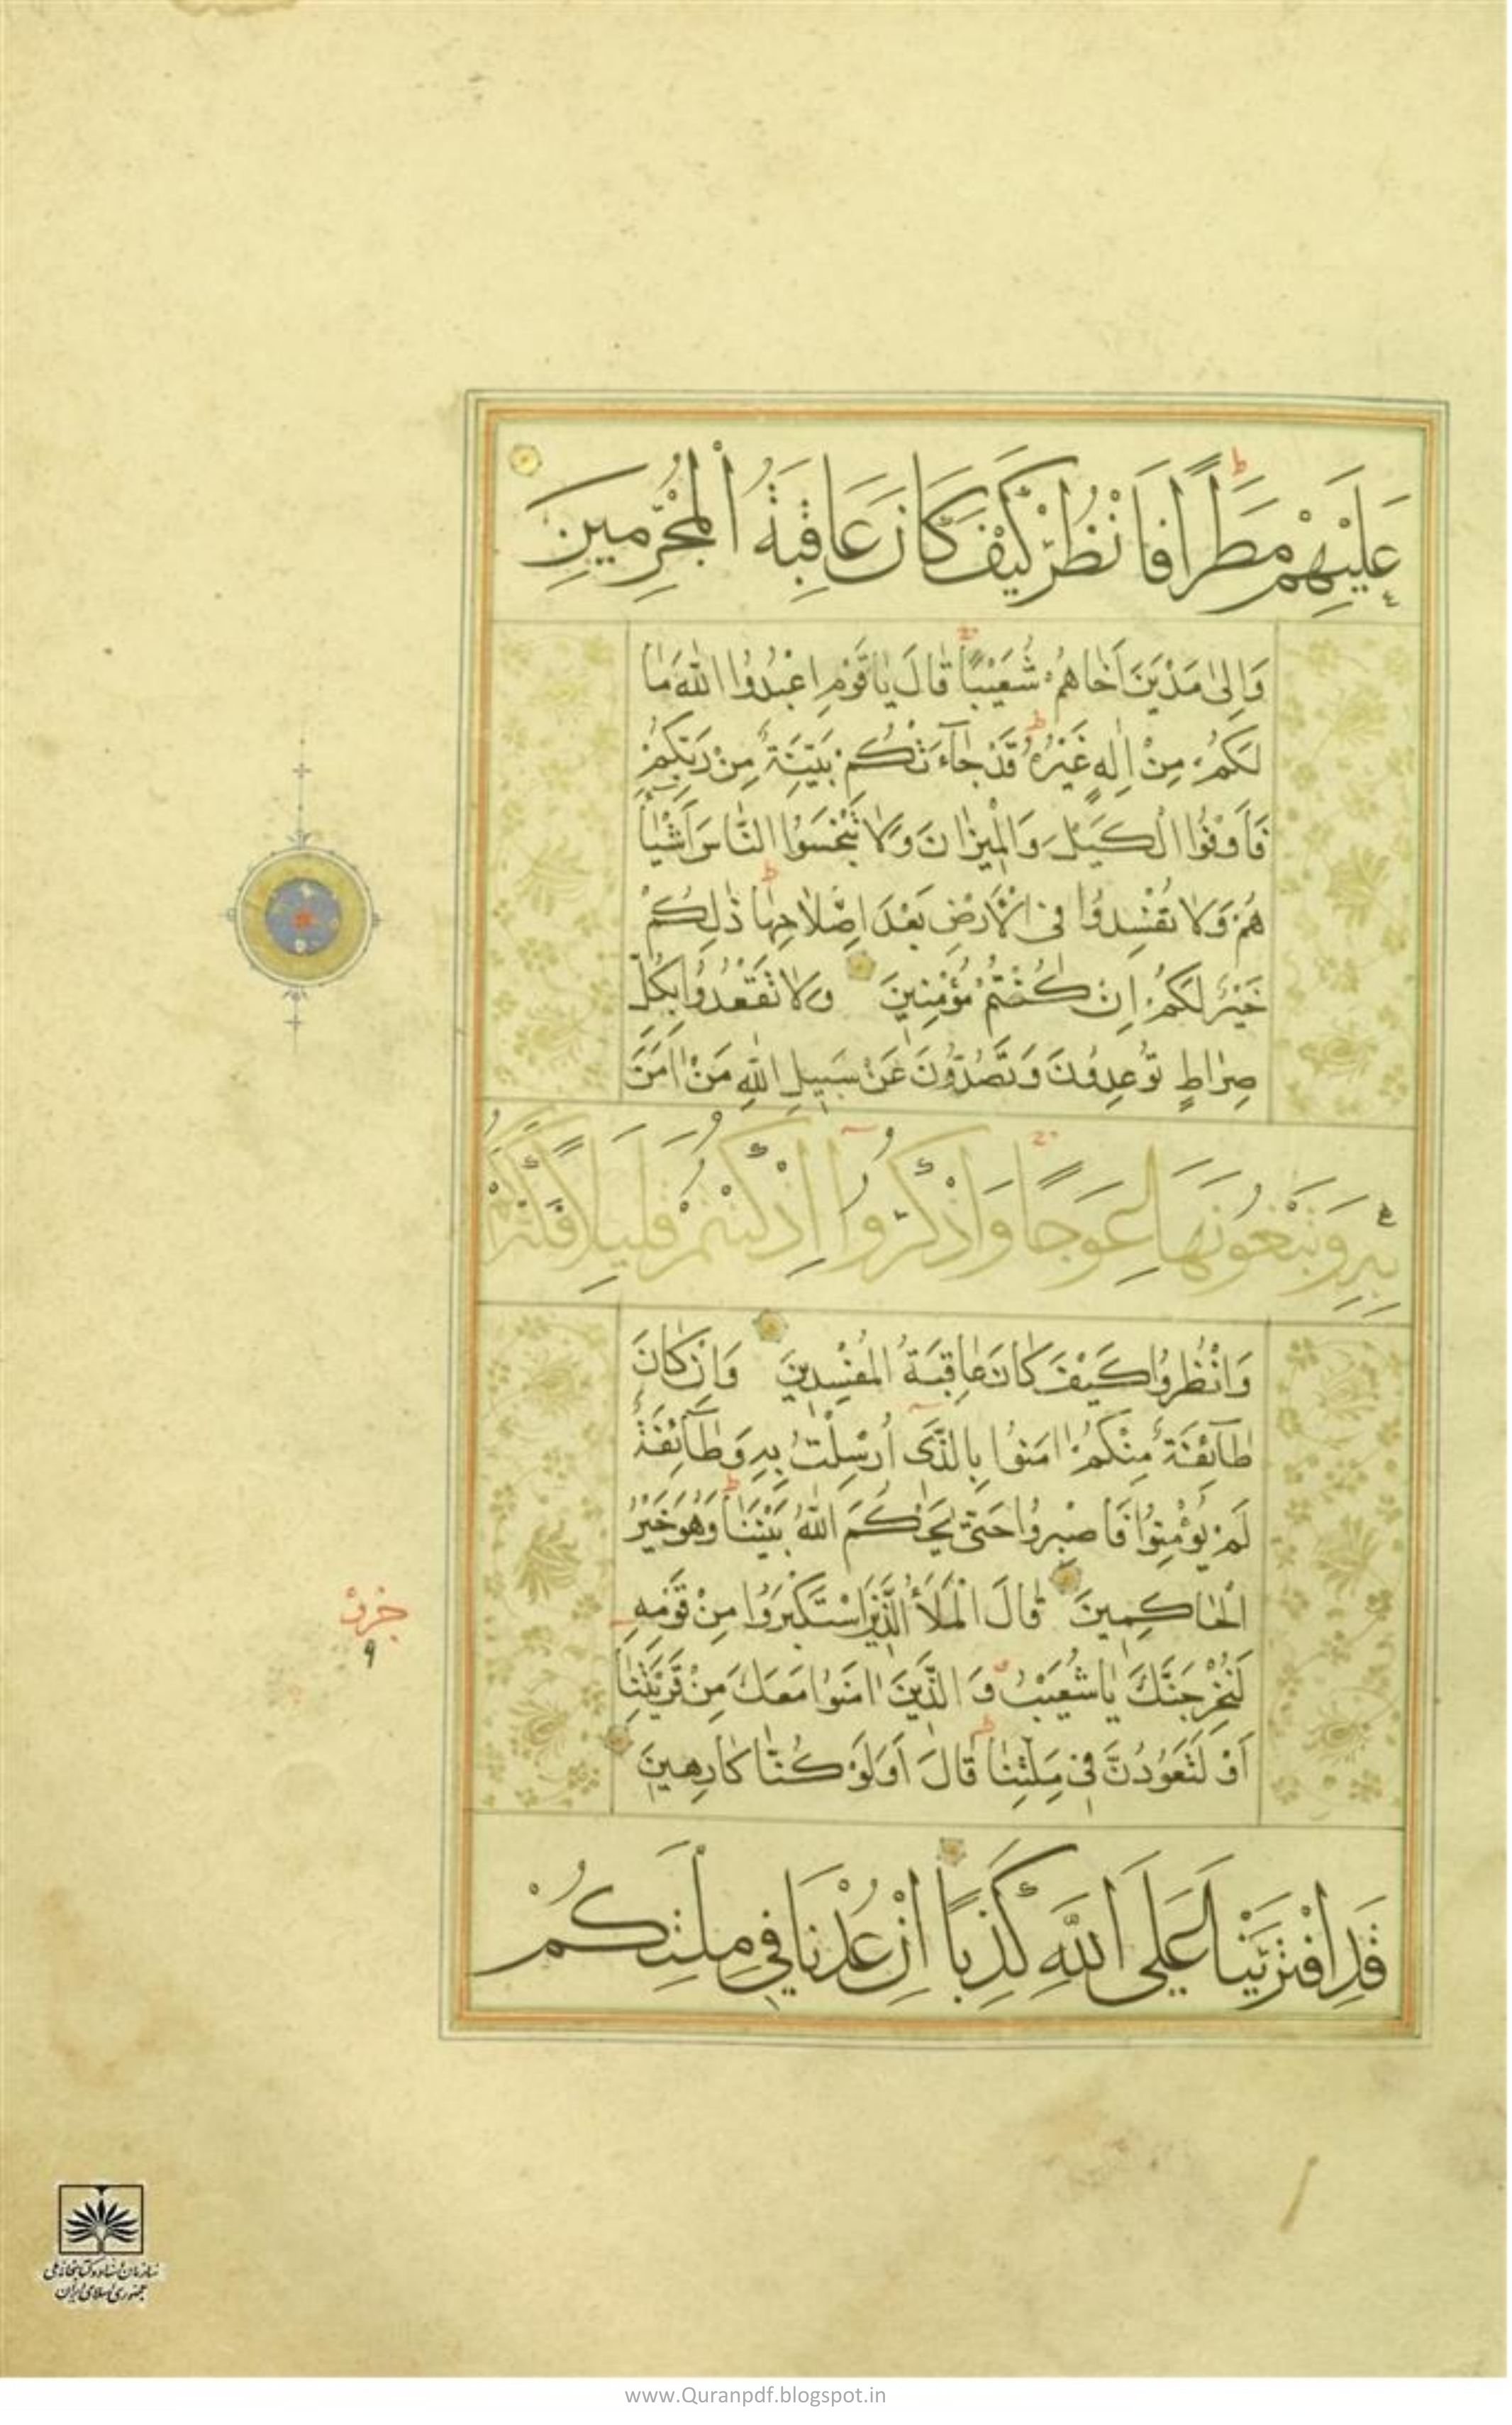 عَلَيْهِمْ مَطَرًا فَانْظُرْ كَيْفَ كَانَ عَاقِبَةُ الْمُجْرِمِينَ
وَاِلٰى مَدْيَنَ اَخَاهُمْ شُعَيْبًا قَالَ يٰاقَوْمِ اعْبُدُوا اللّٰهَ مٰا
لَكُمْ مِنْ اِلٰهٍ غَيْرُهُ قَدْ جٰآءَتْكُمْ بَيِّنَةٌ مِنْ رَبِّكُمْ
فَاَوْفُوا الْكَيْلَ وَالْمِيزٰانَ وَلٰا تَبْخَسُوا النّٰاسَ اَشْيٰٓا
هُمْ وَلٰا تُفْسِدُوا فِى الْاَرْضِ بَعْدَ اِصْلٰاحِهٰا ذٰلِكُمْ
خَيْرٌ لَكُمْ اِنْ كُنْتُمْ مُؤْمِنِينَ وَلٰا تَقْعُدُوا بِكُلِّ
صِرٰاطٍ تُوعِدُونَ وَتَصُدُّونَ عَنْ سَبِيلِ اللّٰهِ مَنْ اٰمَنَ
بِهِ وَتَبْغُونَهَا عِوَجًا وَاذْكُرُوا اِذْ كُنْتُمْ قَلِيلًا فَكَثَّرَكُمْ
وَانْظُرُوا كَيْفَ كٰانَ عٰاقِبَةُ الْمُفْسِدِينَ وَاِنْ كٰانَ
طٰآئِفَةٌ مِنْكُمْ اٰمَنُوا بِالَّذِى اُرْسِلْتُ بِهِ وَطٰآئِفَةٌ
لَمْ يُؤْمِنُوا فَاصْبِرُوا حَتّٰى يَحْكُمَ اللّٰهُ بَيْنَنٰا وَهُوَ خَيْرُ
الْحٰاكِمِينَ قٰالَ الْمَلَأُ الَّذِينَ اسْتَكْبَرُوا مِنْ قَوْمِهِ
لَنُخْرِجَنَّكَ يٰاشُعَيْبُ وَالَّذِينَ اٰمَنُوا مَعَكَ مِنْ قَرْيَتِنٰا
اَوْ لَتَعُودُنَّ فِى مِلَّتِنٰا قٰالَ اَوَلَوْ كُنّٰا كٰارِهِينَ
قَدِ افْتَرَيْنَا عَلَى اللّٰهِ كَذِبًا اِنْ عُدْنَا فِي مِلَّتِكُمْ
جزو
٩
سازمان اسناد و کتابخانه ملی
جمهوری اسلامی ایران
www.Quranpdf.blogspot.in